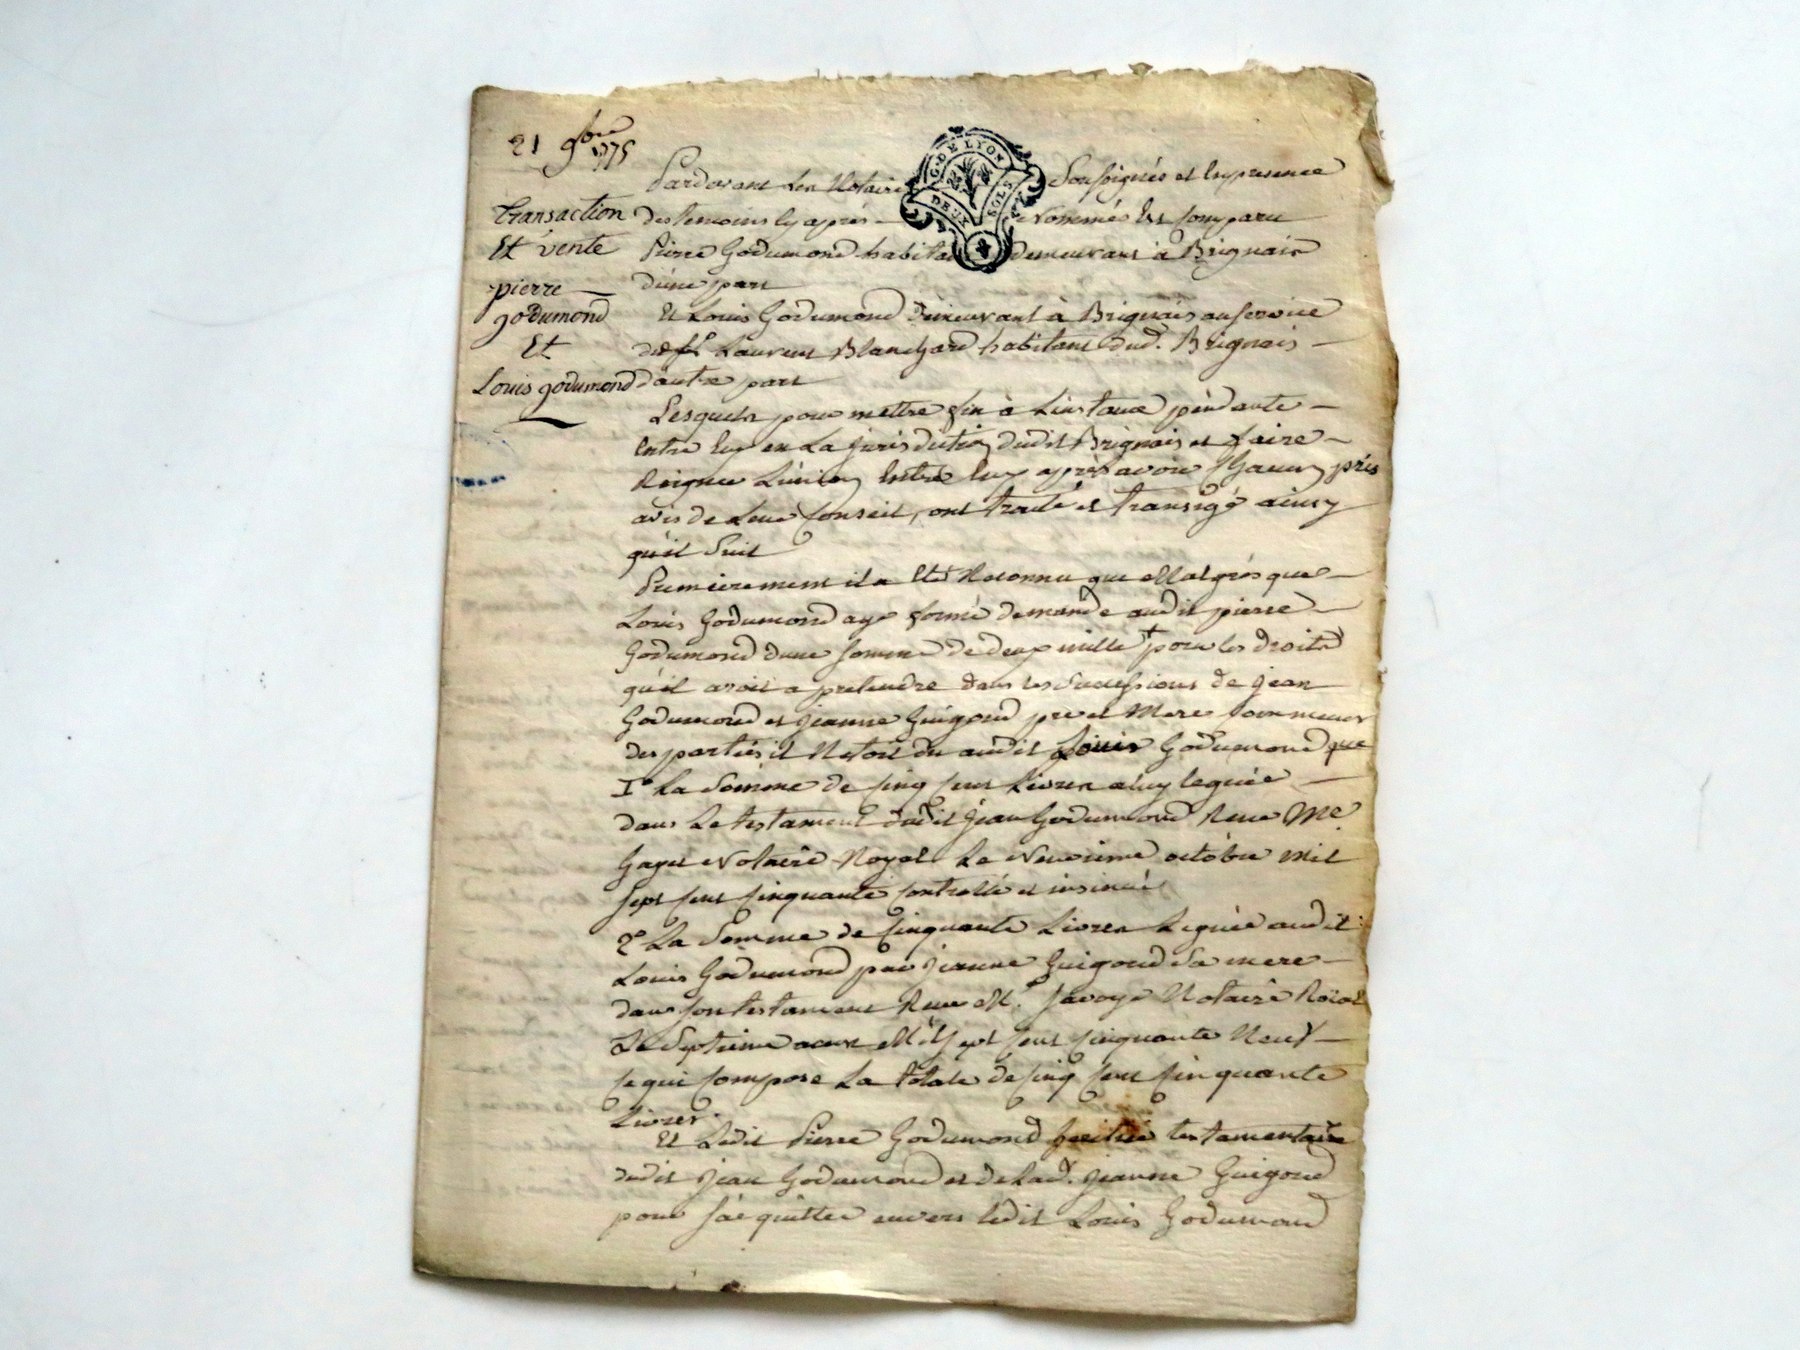 21 9bre
1775
G. DE LYON
DEUX SOLS
Transaction
Et vente
pierre
godumond
Et
Louis godumond
Pardevant Les Notaires Soussignés et en presence
des temoins cy aprés - nommés Est Comparu
Pierre Godumond habitant demeurant à Brignais
d'une part
Et Louis Godumond demeurant à Brignais au service
de Laurent Blanchard habitant dud. Brignais -
d'autre part
Lesquels pour mettre fin à L'instance pendante -
Entre eux en La jurisdiction dudit Brignais et faire -
Reigner L'union Entre eux après avoir Chacun pris
avis de Leur Conseil, ont traité et transigé ainsy
qu'il Suit
Premierement il a Eté Reconnu que Malgrés que -
Louis Godumond aye formé demande audit pierre -
Godumond d'une somme de deux mille # pour les droits
qu'il avoit a pretendre dans les Successions de jean
Godumond et jeanne Guigoud pere et Mere Communs
des parties il N'etoit du audit Louis Godumond que
1° La Somme de Cinq Cens Livres a luy leguée -
dans Le testament dudit jean Godumond Reçu Me
Notaire Royal Le Neuvieme octobre Mil
Sept Cent Cinquante Controllé et insinué
2° La Somme de Cinquante Livres Leguée audit
Louis Godumond par jeanne Guigoud Sa mere -
dans Son testament Reçu Me. Savoye Notaire Roial
Le Septieme Mil Sept Cent Cinquante Neuf -
Ce qui Compose La totale de Cinq Cens Cinquante
Livres.
Et Ledit Pierre Godumond heritié testamentaire
dudit jean Godumond et de Lad. jeanne Guigoud
pour S'acquitter envers ledit Louis Godumond